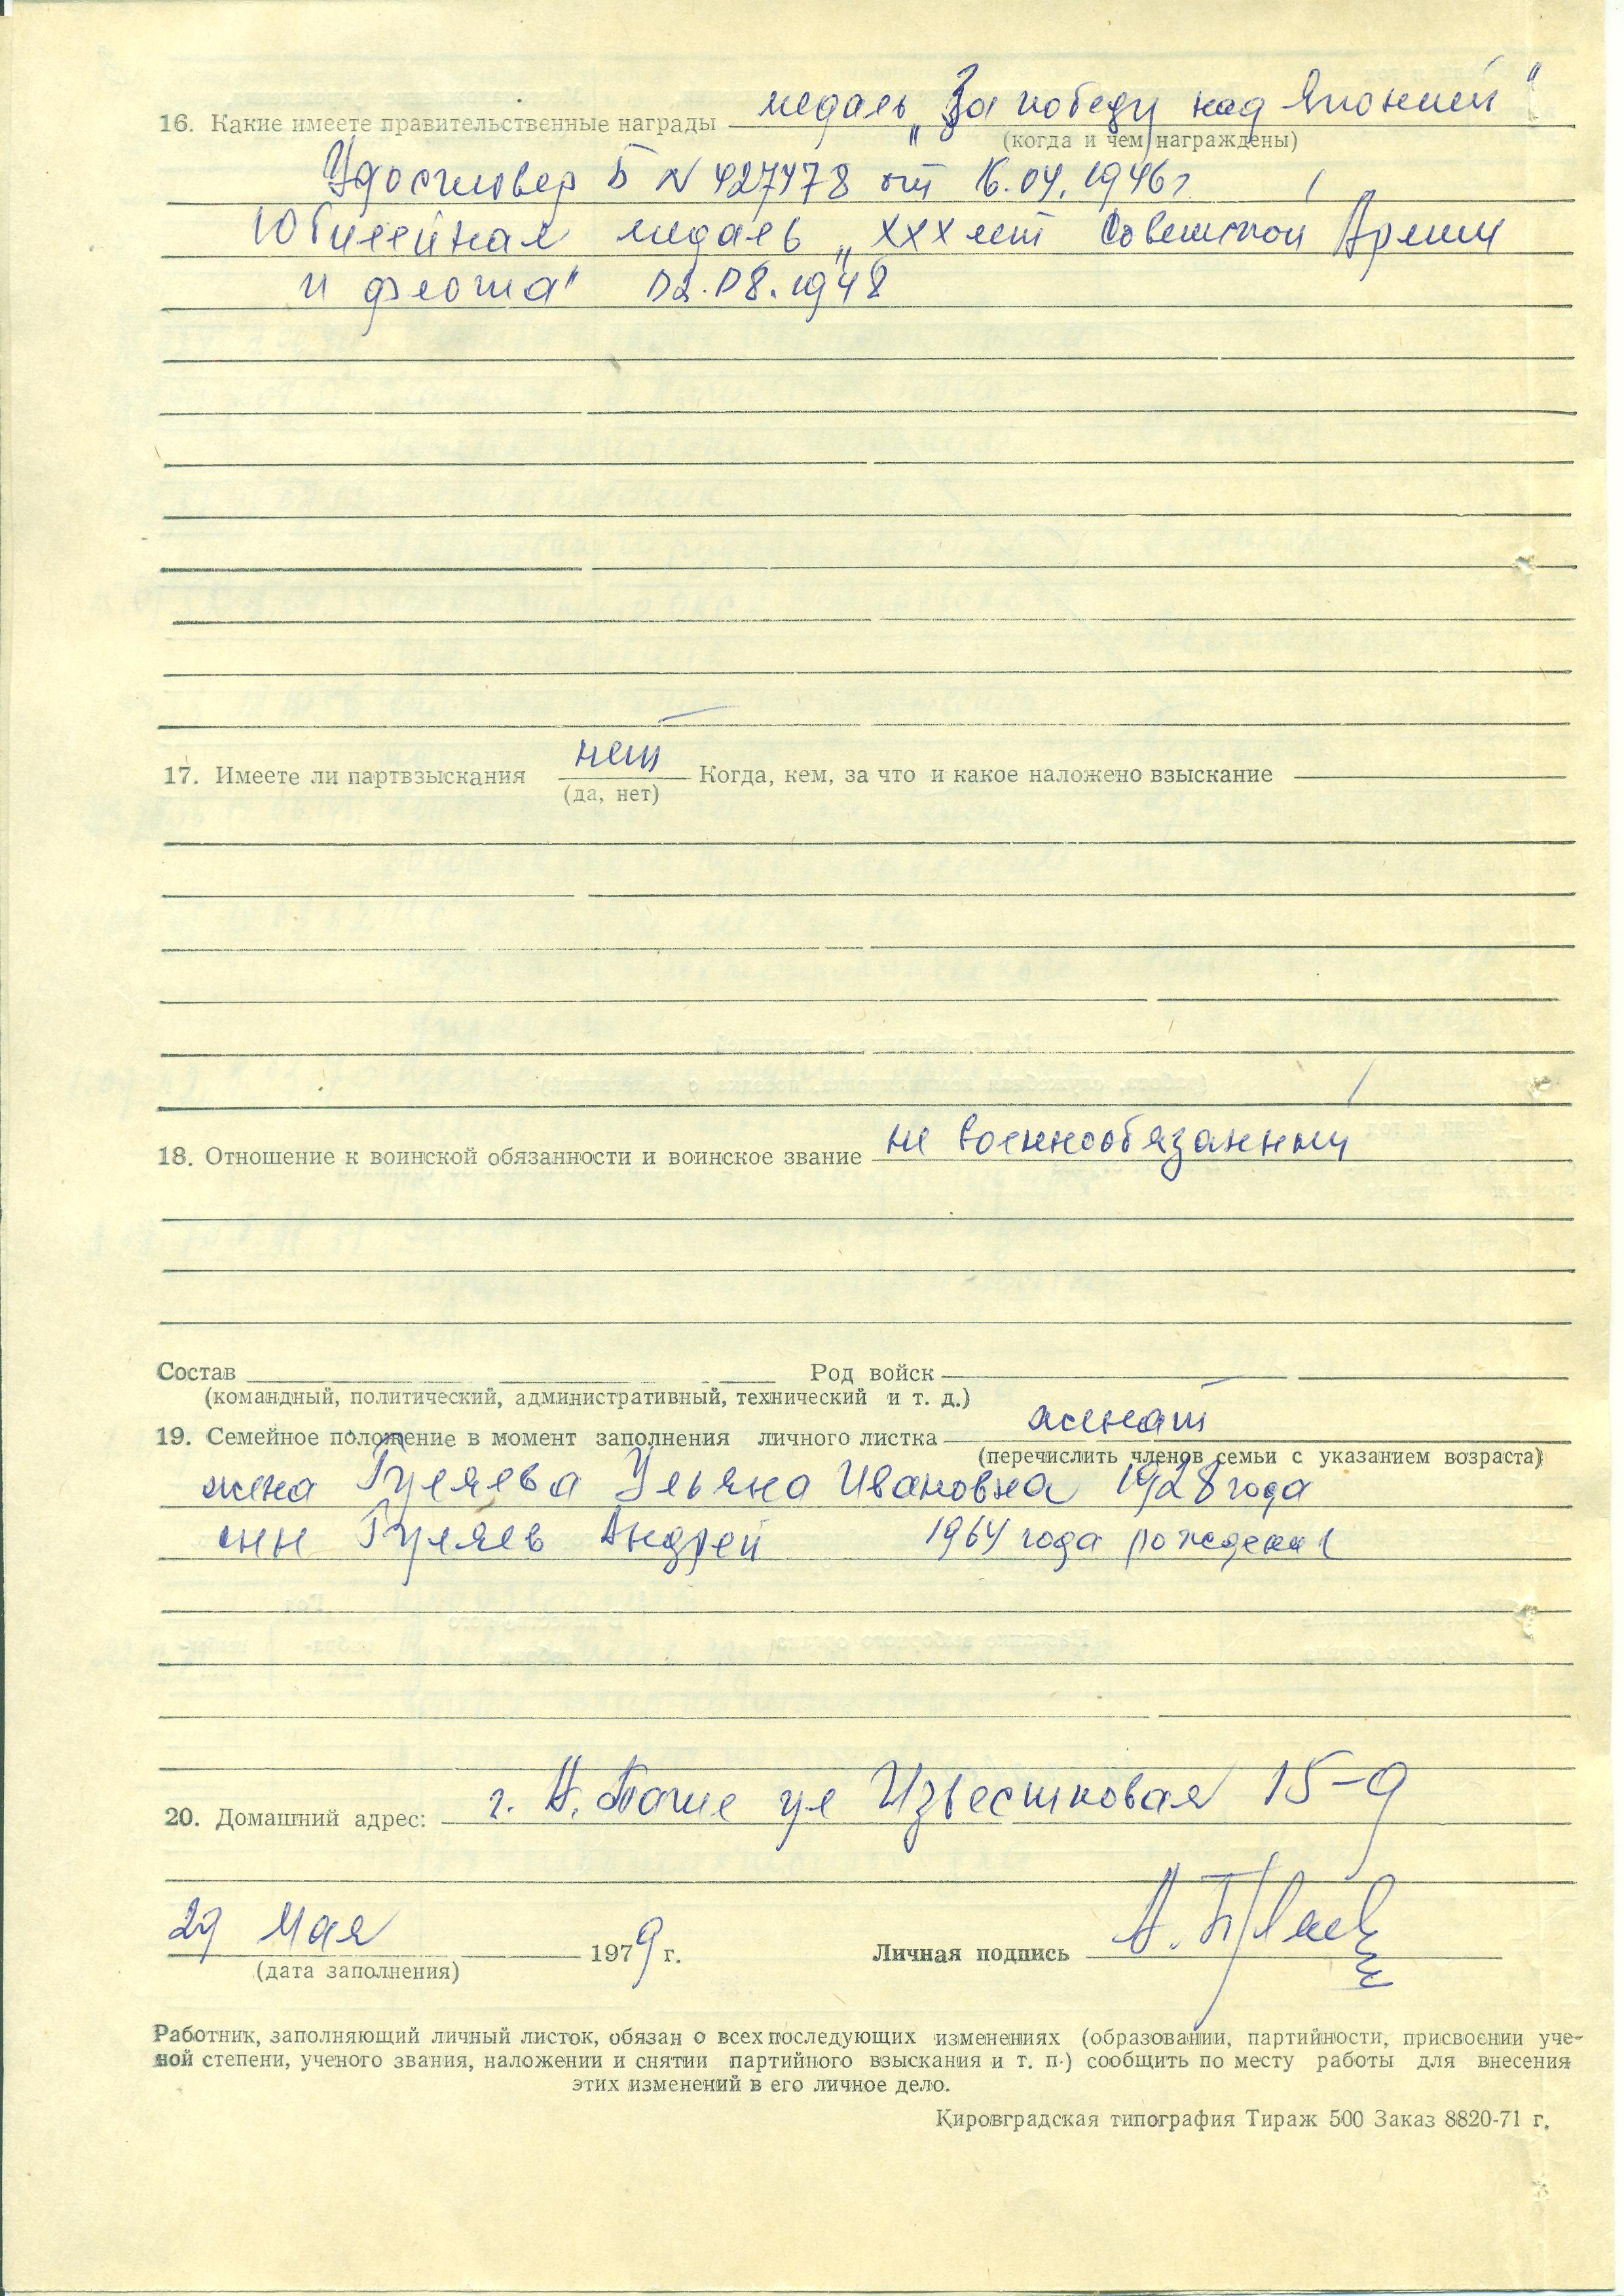 16. Какие имеете правительственные награды медаль „За победу над Японией"
(когда и чем награждены)
Удостовер Б № 427478 от 16.04.1946 г
Юбилейная медаль „ХХХ лет Советской Армии
и флота" 02.08.1948
17. Имеете ли партвзыскания нет Когда, кем, за что и какое наложено взыскание
(да, нет)
18. Отношение к воинской обязанности и воинское звание не военнообязанный
Состав Род войск
(командный, политический, административный, технический и т. д.)
19. Семейное положение в момент заполнения личного листка женат
(перечислить членов семьи с указанием возраста)
жена Гуляева Ульяна Ивановна 1928 года
сын Гуляев Андрей 1964 года рождения
20. Домашний адрес: г. ул Известковая 15-9
29 мая 1979 г. Личная подпись
(дата заполнения)
Работник, заполняющий личный листок, обязан о всех последующих изменениях (образовании, партийности, присвоении уче-
ной степени, ученого звания, наложении и снятии партийного взыскания и т. п.) сообщить по месту работы для внесения
этих изменений в его личное дело.
Кировградская типография Тираж 500 Заказ 8820-71 г.